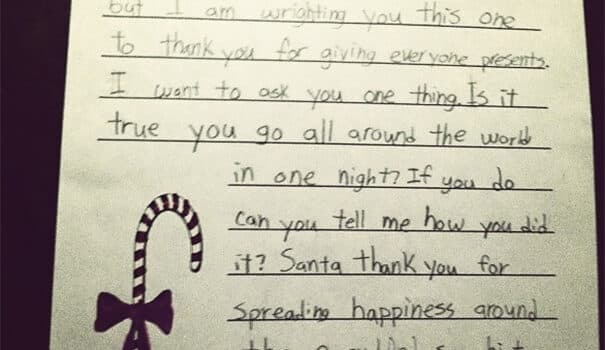 but I am wrighting you this one
to thank you for giving everyone presents.
I want to ask you one thing. Is it
true you go all around the world
in one night? If you do
can you tell me how you did
it? Santa thank you for
spreading happiness around